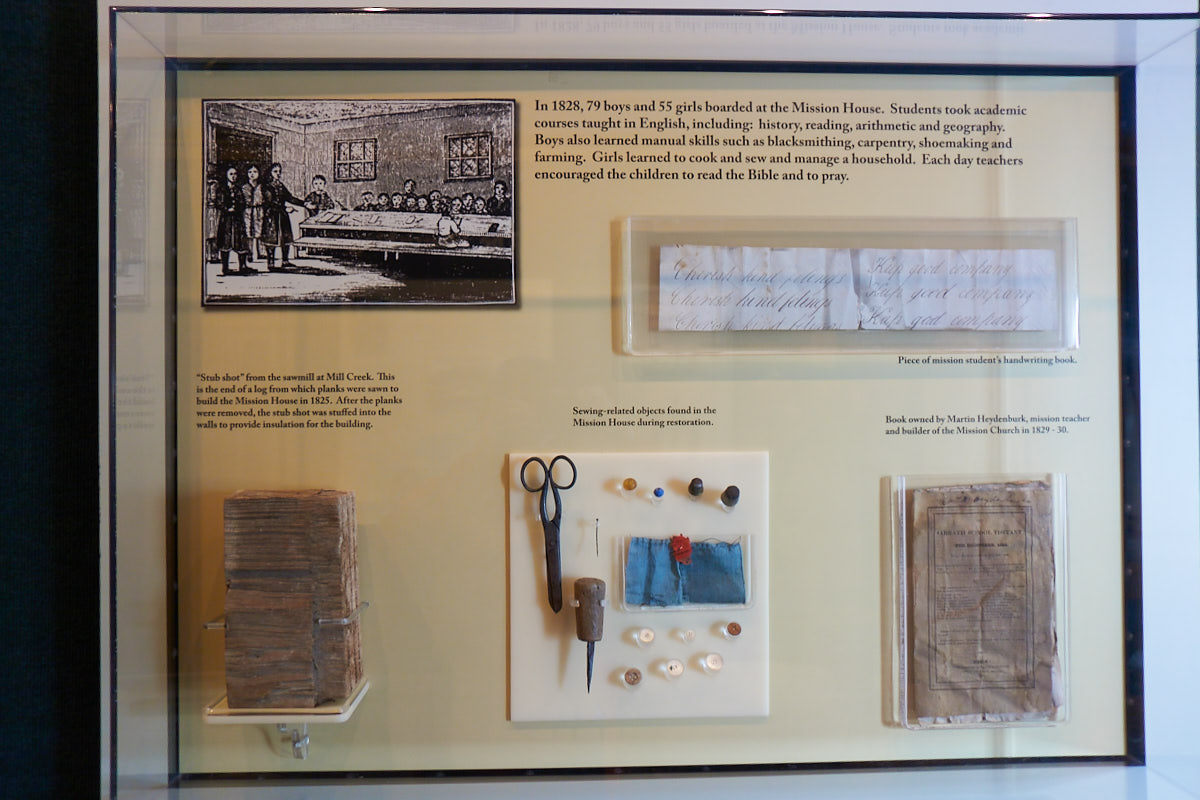 In 1828, 79 boys and 55 girls boarded at the Mission House. Students took academic
courses taught in English, including: history, reading, arithmetic and geography.
Boys also learned manual skills such as blacksmithing, carpentry, shoemaking and
farming. Girls learned to cook and sew and manage a household. Each day teachers
encouraged the children to read the Bible and to pray.
Cherish kind felings Kup good company
Cherish kind felings Kup good company
Cherish kind felings Kup god company
Piece of mission student's handwriting book.
"Stub shot" from the sawmill at Mill Creek. This
is the end of a log from which planks were sawn to
build the Mission House in 1825. After the planks
were removed, the stub shot was stuffed into the
walls to provide insulation for the building.
Sewing-related objects found in the
Mission House during restoration.
Book owned by Martin Heydenburk, mission teacher
and builder of the Mission Church in 1829 - 30.
SABBATH SCHOOL VISITANT